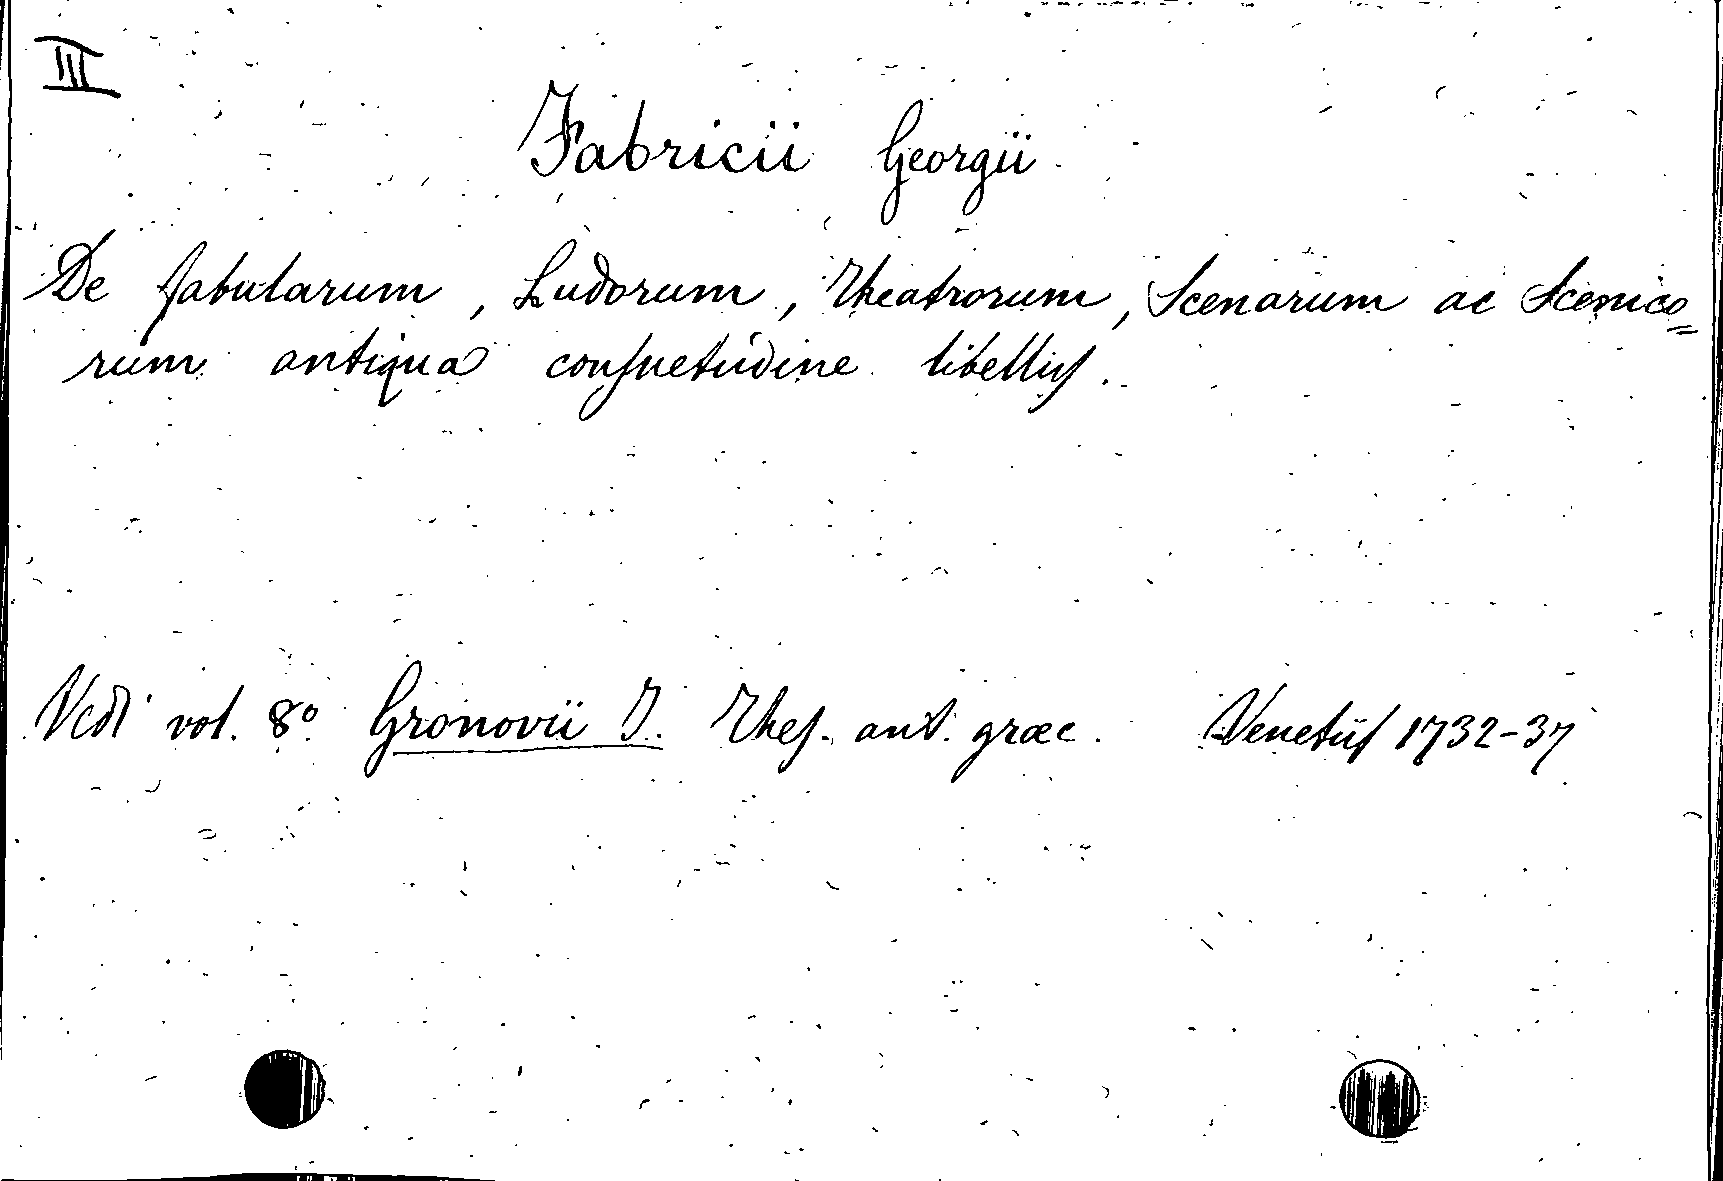 III
Fabricii Georgii
De fabularum, Ludorum, Theatrorum, Scenarum ac Scenico=
rum antiqua conſuetudine libelluſ.
Vedi vol. 8º Gronovii J. Theſ. ant. græc. Venetiiſ 1732-37